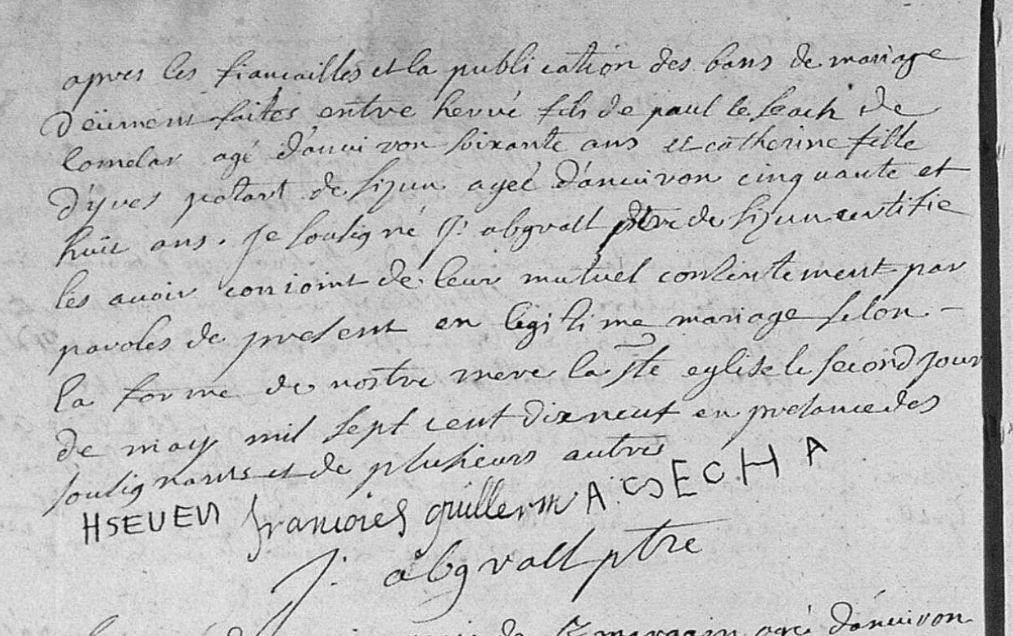 apres les fiancailles et la publication des bans de mariage
deüment faites entre hervé fils de paul le seach de
lomelar agé d'anuiron soixante ans et catherine fille
d'yves potart de sizun ageé d'anuiron cinquante et
huit ans. je soussigné J: abgrall ptre de sizun certifie
les auoir conioint de leur mutuel consentement par
paroles de present en legitime mariage selon -
la forme de nostre mere la ste eglise le second jour
de may mil sept cent dixneuf en presance des
soulignants et de plusieurs autres
HSEUEN francoies guillerm A SECH A
J: abgrall ptre
de agé d'anuiron